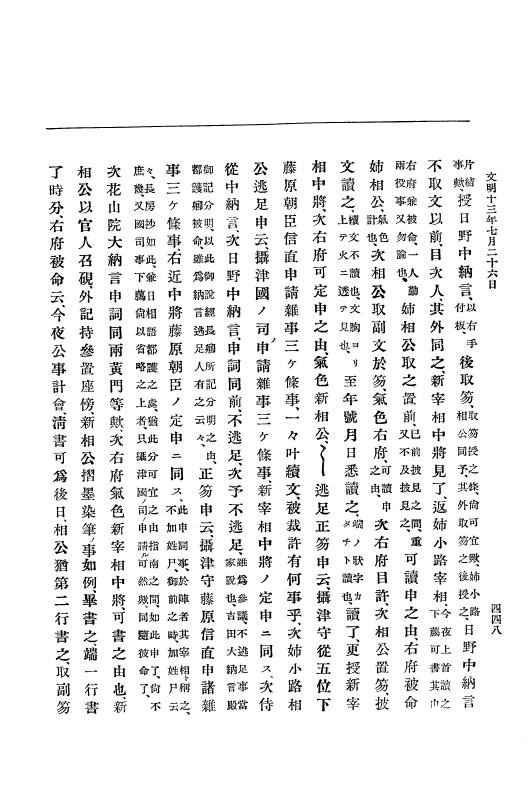 文明十三年七月二十六日
四四八
片績
事歟、授日野中納言、以右手
付板、後取笏、取笏授之條、尙可宜歟、姉小路
相公同予、其外取笏之後授之、日野中納言
不取文以前、目次人、其外同之、新宰相中將見了、返姉小路宰相、今夜上首讀之
下﨟可書其巾
右府兼被命、一人勤
兩役事又勿論也、姉相公取之置前、已前披見之間、重
又不及披見之、可讀申之由右府被命
姉相公、氣色
計也、次相公取副文於笏、氣色右府、可讀申
之由、次右府目許、次相公置笏、披
文讀之、續文不讀也、文胸ヨリ
上テ火ニ透テ見也、至年號月日悉讀之、端ノ狀字カ
タチト讀也、讀了、更授新宰
相中將、次右府可定申之由、氣色新相公、〳〵逃足正笏申云、攝津守從五位下
藤原朝臣信直申請雜事三ケ條事、一々叶續文、被裁許有何事乎、次姉小路相
公逃足申云、攝津國ノ司ノ申請雜事三ケ條事、新宰相中將ノ定申ニ同ス、次侍
從中納言、次日野中納言、申詞同前、不逃足、次予不逃足、雖爲參議、不逃足事當
家說也、吉田大納言殿
御記分明、以此御說經長卿所記分明之由、
都護卿被命、雖爲納言逃足人有之云々、正笏申云、攝津守藤原信直申請雜
事三ケ條事、右近中將藤原朝臣ノ定申ニ同ス、此申詞事、於陣者其宰相ト稱之、
不加姓尸、御前之時、加姓尸云
々、長房抄如此、兼日相語都護之處、猶此分可宜之由指南之間、如此申了、尙不
庶幾、又國司事下﨟尙以省略之上者、只攝津國ノ司ノ申請ル可然歟、同隨彼命了、
次花山院大納言申詞同兩黃門等歟、次右府氣色新宰相中將可書之由也、新
相公以官人召硯、外記持參置座傍、新相公摺墨染筆ノ事如例、畢書之、端一行書
了時分、右府被命云、今夜公事計會、淸書可爲後日、相公猶第二行書之、取副笏